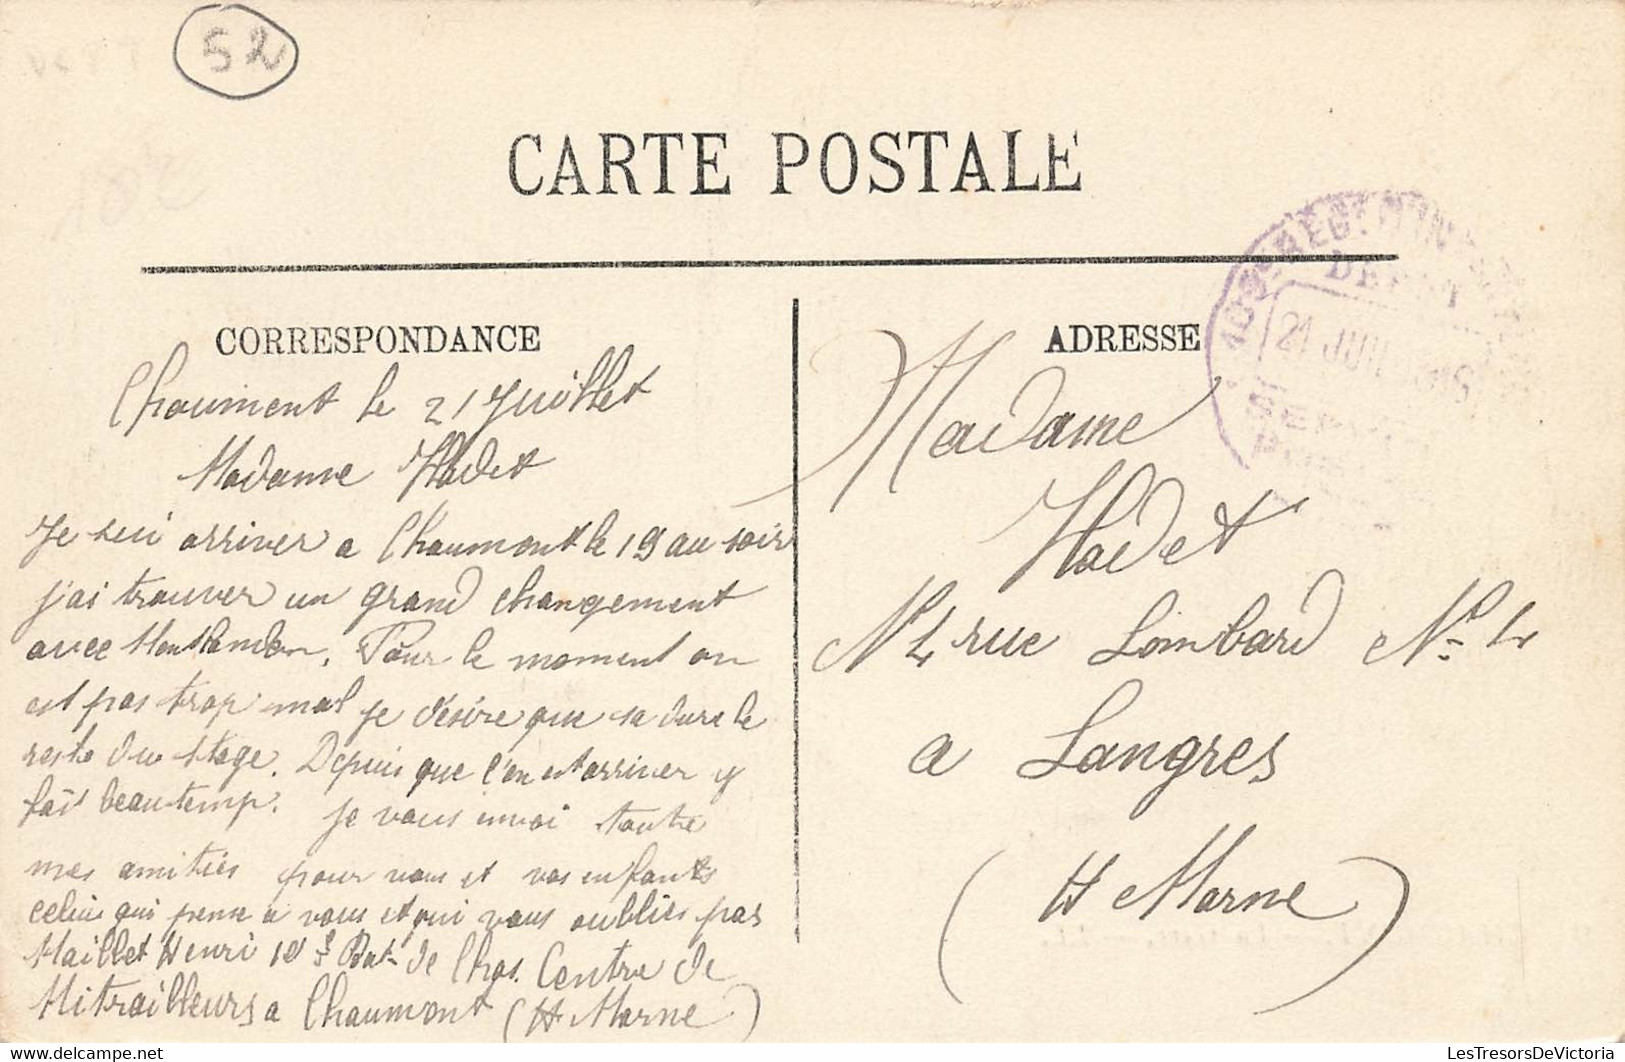 52
CARTE POSTALE
CORRESPONDANCE
Chaumont le 21 Juillet
Madame Hadet
Je sui arriver a Chaumont le 19 au soir
j'ai trouver un grand changement
avec Montlandon. Pour le moment on
est pas trop mal je désire que sa dure le
reste du stage. Depuis que l'on est arriver y
fait beau temp. je vous envoi toute
mes amitiés pour vous et vos enfants
celui qui pense a vous et qui vous oublis pas
Maillet Henri 10 Bat de Chas. Centre de
Mitrailleurs a Chaumont (H Marne)
ADRESSE
Madame
Hadet
No 4 rue Lombard No 4
a Langres
(H Marne)
DEPOT
21 JUIL
LesTresorsDeVictoria
https://www.delcampe.net